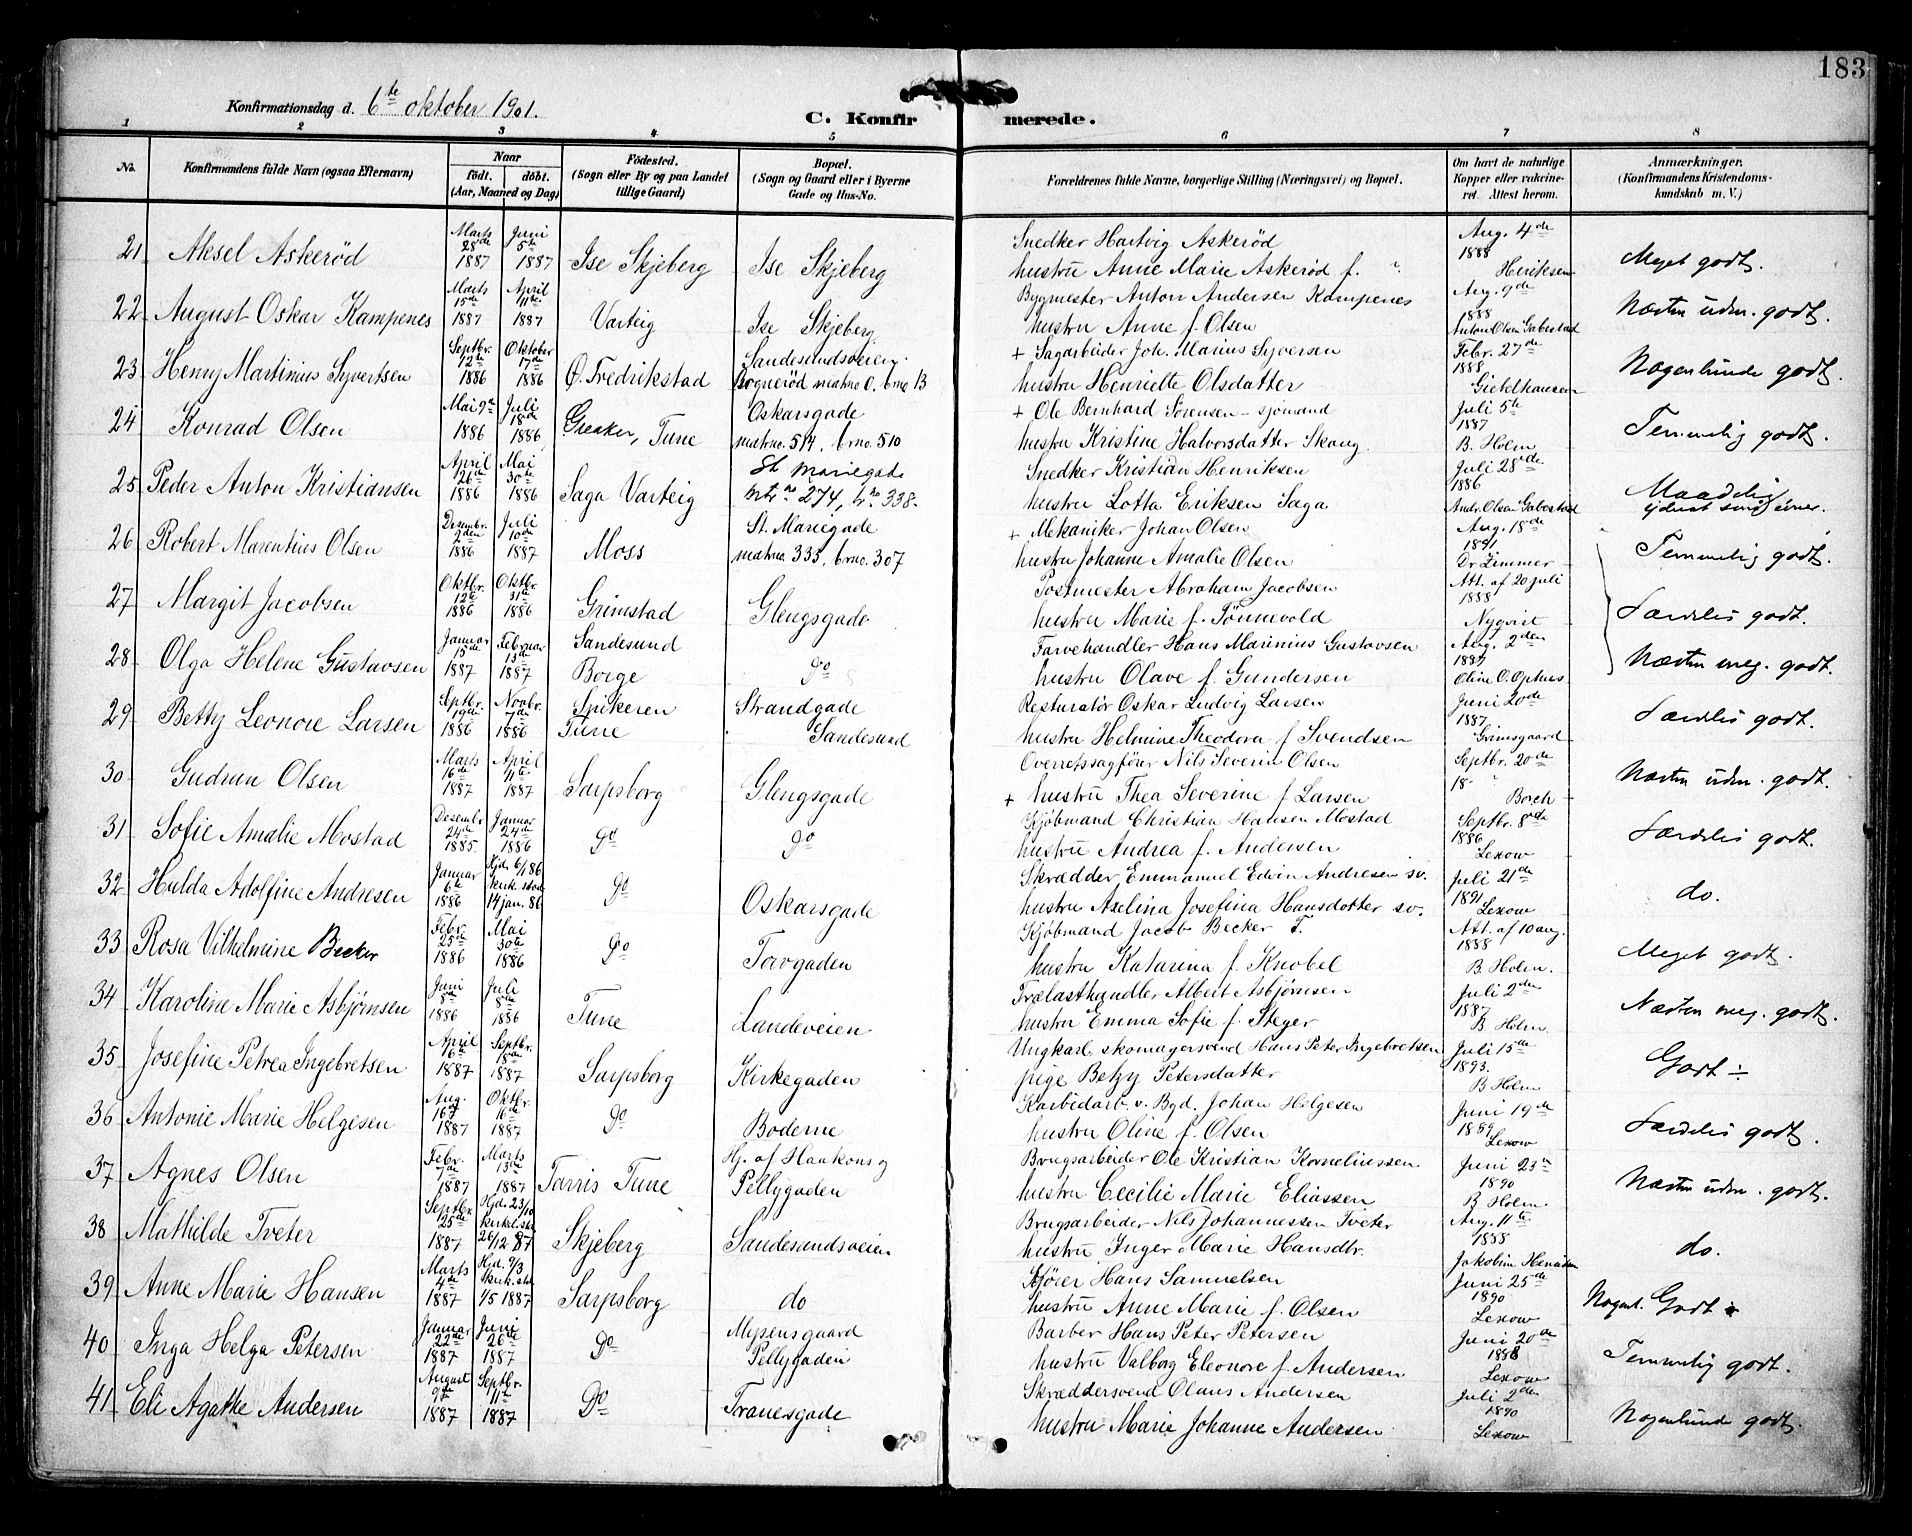 183
Konfirmationsdag d. 6te oktober 1901.
C. Konfirmerede.
1 2 3 4 5 6 7 8
No. Konfirmandens fulde Navn (ogsaa Efternavn) Naar født. døbt. (Aar, Maaned og Dag) Fødested. (Sogn eller By og paa Landet tillige Gaard) Bopæl. (Sogn og Gaard eller i Byerne Gade og Hus-No. Forældrenes fulde Navne, borgerlige Stilling (Næringsvei) og Bopæl. Om havt de naturlige Kopper eller vakcineret. Attest herom. Anmærkninger. (Konfirmandens Kristendomskundskab m. V.)
21 Aksel Askerød Marts 28de 1887 Juni 5te 1887 Ise Skjeberg Ise Skjeberg Snedker Hartvig Askerød hustru Anne Marie Askerød f. " Aug. 4de 1888 Henriksen Meget godt.
22 August Oskar Kampenes Marts 15de 1887 April 11te 1887 Varteig Ise Skjeberg Bygmester Anton Andersen Kampenes hustru Anne f. Olsen Aug. 9de 1888 Anton Olsen Gabestad Næsten udm. godt.
23 Henry Martinius Syvertsen Septbr. 12te 1886 Oktober 17de 1886 Ø. Fredrikstad Sandesundsveien Bognerød matrno 0. brno 13 + Sagarbeider Joh. Marius Syversen hustru Henriette Olsdatter Febr. 27de 1888 Giebelhausen Nogenlunde godt.
24 Konrad Olsen Mai 9de 1886 Juli 18de 1886 Greaker, Tune Oskarsgade matrno. 514. brno. 510 + Ole Bernhard Sørensen - sjømand hustru Kristine Halvorsdatter Skaug Juli 5te 1887 B. Holm Temmelig godt.
25 Peder Anton Kristiansen April 26de 1886 Mai 30te 1886 Saga Varteig St. Mariegade mtr no 274, br no 338. Snedker Kristian Henriksen hustru Lotta Eriksen Saga Juli 28de 1886 Andr. Olsen Gabestad Maadelig
26 Robert Marentius Olsen Desembr. 2den 1886 Juli 10de 1887 Moss St. Mariegade matrno 333. brno. 307 + Mekaniker Johan Olsen hustru Johanne Amalie Olsen Aug. 18de 1891 Dr Zimmer Temmelig godt.
27 Margit Jacobsen Oktbr. 12te 1886 Oktbr. 31te 1886 Grimstad Glengsgade Postmester Abraham Jacobsen hustru Marie f. Tønnevold Att. af 20 juli 1888 Nyqvist Særdeles godt.
28 Olga Helene Gustavsen Januar 15de 1887 Februar 13de 1887 Sandesund Borge Do Farvehandler Hans Marinius Gustavsen hustru Olave f. Gundersen Aug. 2den 1887 Oline O. Ophus Næsten meg. godt.
29 Betty Leonore Larsen Septbr. 19de 1886 Novbr. 7de 1886 Spikeren Tune Strandgade Sandesund Resturatør Oskar Ludvig Larsen hustru Helmine Theodora f Svendsen Juni 20de 1887 Grimsgaard Særdeles godt.
30 Gudrun Olsen Marts 16de 1887 April 11te 1887 Sarpsborg Glengsgade Overretssagfører Nils Severin Olsen + hustru Thea Severine f Larsen Septbr. 20de 18- " Borch Næsten udm. godt.
31 Sofie Amalie Mostad Desembr. 24de 1885. Januar 24de 1886 Do Do Kjøbmand Christian Hansen Mostad hustru Andrea f. Andersen Septbr. 8de 1886 Lexow Særdeles godt.
32 Hulda Adolfine Andresen Januar 6te 1886 Hjd. 6/1 86 kirk. stad 14 jan. 86 Do Oskarsgade Skrædder Emmanuel Edvin Andresen sv. hustru Axelina Josefina Hansdotter sv. Juli 21de 1891 Lexow do.
33 Rosa Vilhelmine Becker Febr. 25de 1886 Mai 30te 1886 Do Torvgaden Kjøbmand Jacob Becker T. hustru Katarina f. Knobel Att. af 10 aug. 1888 B. Holm. Meget godt.
34 Karoline Marie Asbjørnsen Juni 8de 1886 Juli 8de 1886 Tune Landeveien Trælasthandler Albert Asbjørnsen hustru Emma Sofie f. Steger Juli 2den 1887 B Holm. Næsten meg. godt.
35 Josefine Petrea Ingebretsen April 16de 1887 Septbr. 18de 1887 Sarpsborg Kirkegaden Ungkarl skomagersvend Hans Peter Ingebretsen pige Betzy Petersdatter Juli 15de 1893. B Holm Godt ÷
36 Antonie Marie Helgesen Aug. 16de 1887 Oktbr. 16de 1887 Do Boderne Karbidarb. v. Bgd. Johan Helgesen hustru Oline f. Olsen Juni 19de 1889 Lexow Særdeles godt.
37 Agnes Olsen Febr. 7de 1887 Marts 13de 1887 Tarris Tune Hj. af Haakons og Pellygaden Brugsarbeider Ole Kristian Korneliussen hustru Cecilie Marie Eliassen Juni 23de 1890 B. Holm. Næsten udm. godt.
38 Mathilde Tveter Septbr 25de 1887 Hjd. 23/10 kirkl. st. 26/12 87 Skjeberg Sandesundsveien Brugsarbeider Nils Johannessen Tveter hustru Inger Marie Hansdtr. Aug. 11te 1888 do.
39 Anne Marie Hansen Marts 4de 1887 Hjd. 9/3 kirk. sta 1/5 1887 Sarpsborg do Kjører Hans Samuelsen hustru Anne Marie f. Olsen Juni 25de 1890 Lexow Nogenl. Godt
40 Inga Helga Petersen Januar 22de 1887 Juni 26de 1887 Do Mysensgaard Pellygaden Barber Hans Peter Petersen hustru Valborg Eleonore f. Andersen Juni 20de 1888 Lexow Temmelig godt.
41 Eli Agathe Andersen August 9de 1887 Septbr. 11te 1887 Do Tranesgade Skræddersvend Olaus Andersen hustru Marie Johanne Andersen Juli 2den 1890 Lexow Nogenlunde godt.